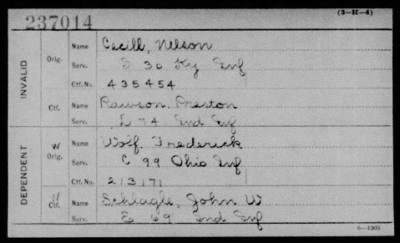 (3-H-4)
237014
INVALID
Orig.
Name Cecill, Nelson
Serv. D 30 Ky Inf
Ctf. No. 435454
Ctf.
Name Rawson, Preston
Serv. L 74 Ind Inf
DEPENDENT
W
Orig.
Name Wolf, Frederick
Serv. C 99 Ohio Inf
Ctf. No. 213171
Ctf.
Name Schlagle, John W
Serv. E 69 Ind Inf
6—1303